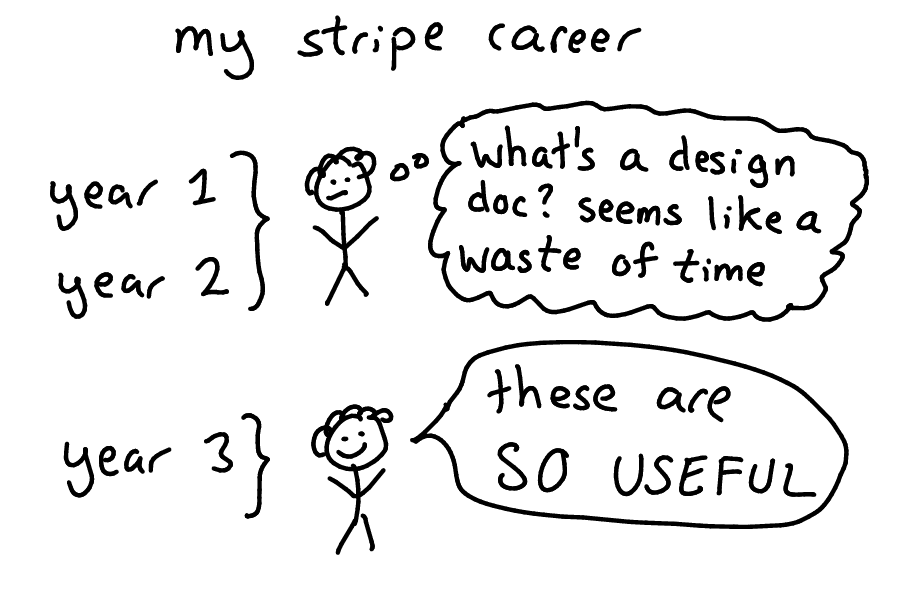 my stripe career
year 1
year 2
what's a design
doc? seems like a
waste of time
year 3
these are
SO USEFUL